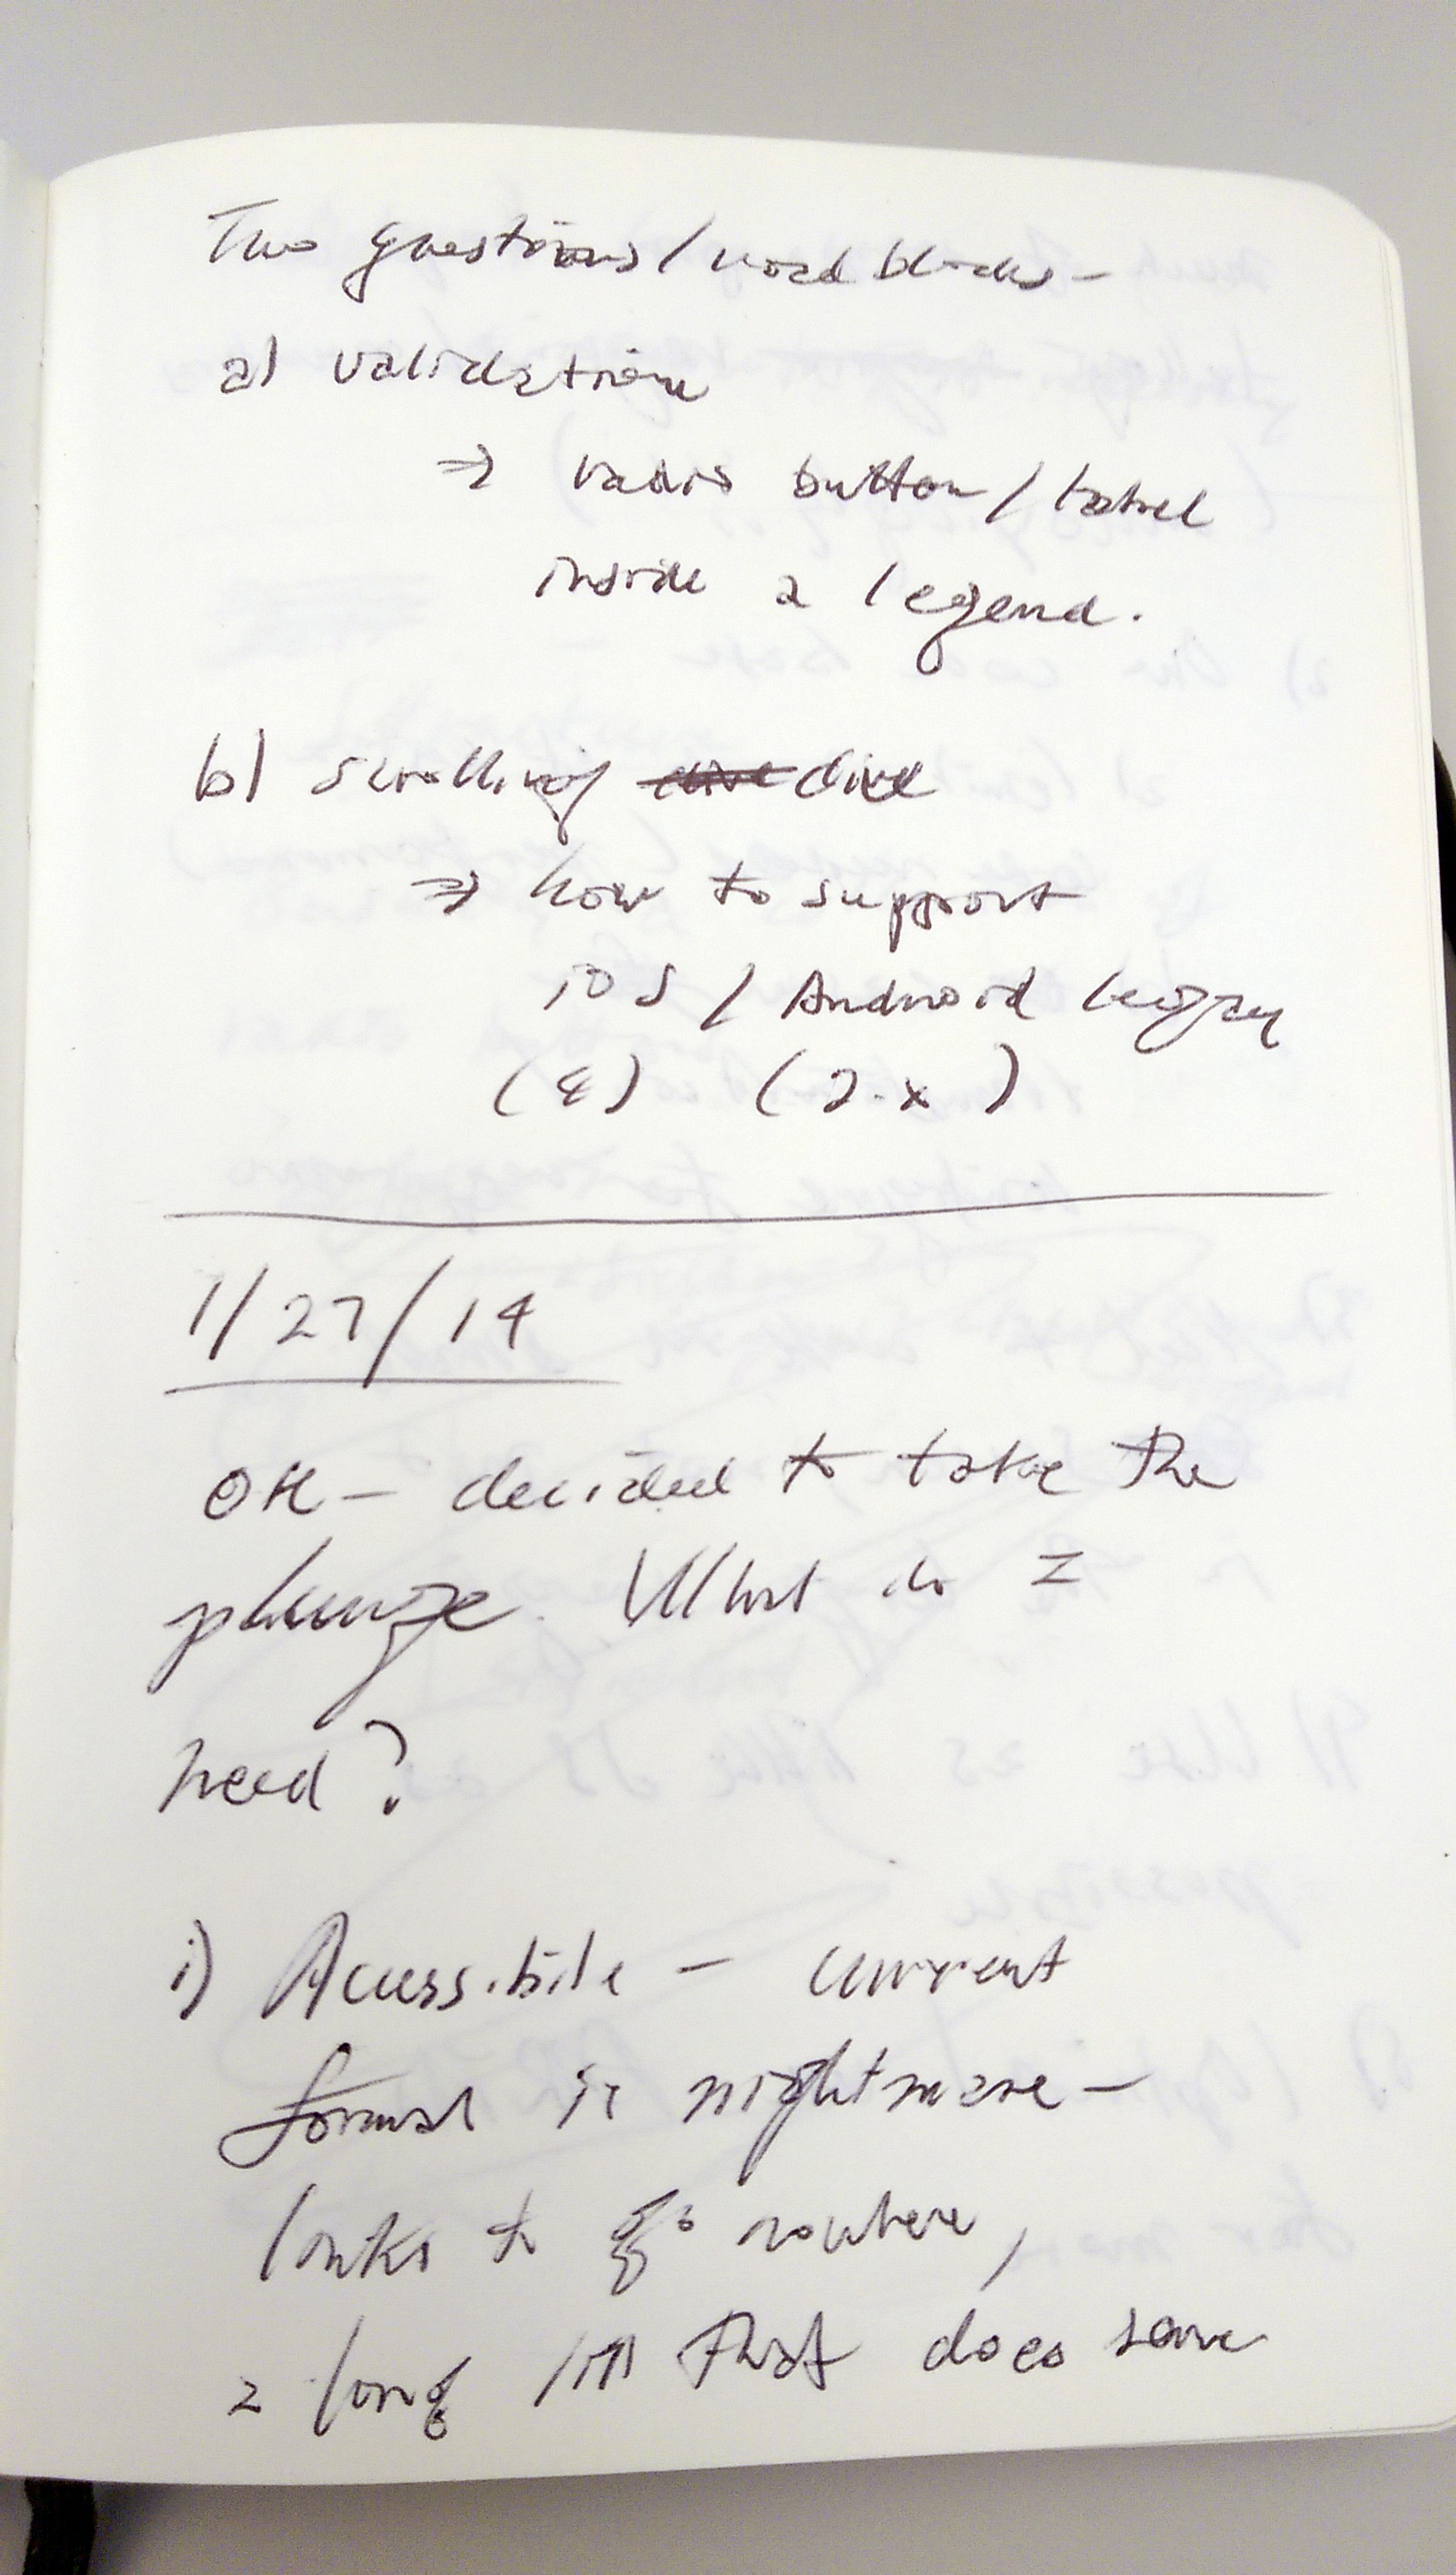 Two questions/road blocks -
a) validation
⇒ radio button/label
inside a legend.
b) scrolling div
⇒ how to support
iOS / Android legacy
(4) (2.x)
1/27/14
OK - decided to take the
plunge. What do I
need?
1) Acessibile - current
format is nightmare -
links to go nowhere,
a long list that does